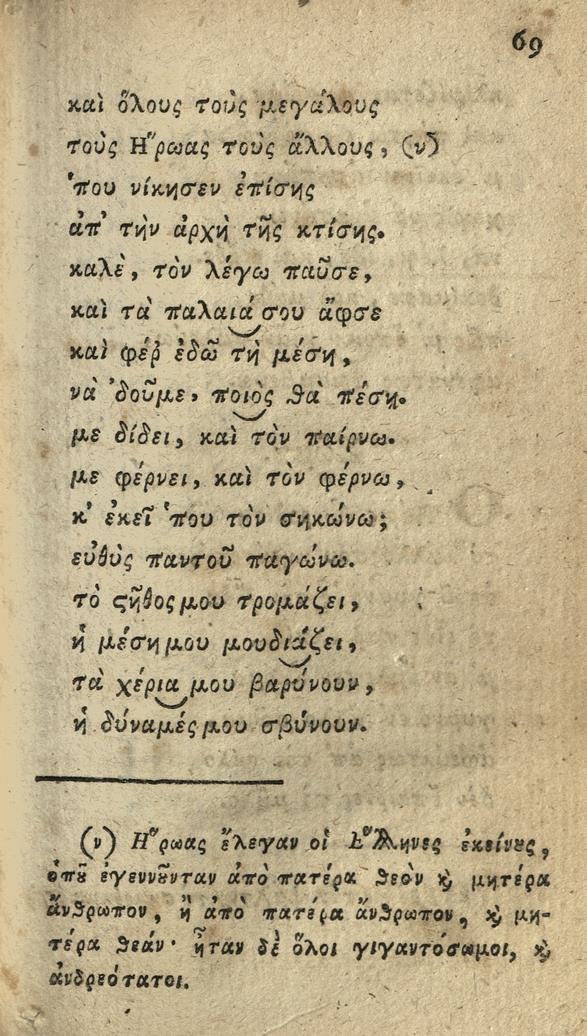 69
καὶ ὅλους τοὺς μεγάλους
τοὺς Ἥρωας τοὺς ἄλλους, (ν)
ʽπου νίκησεν ἐπίσης
ἀπʼ τὴν ἀρχὴ τῆς κτίσης.
καλὲ, τὸν λέγω παῦσε,
καὶ τὰ παλαιά σου ἄφσε
καὶ φέρ ἐδῶ τὴ μέση,
νὰ ʼδοῦμε, ποιὸς θὰ πέσῃ.
με δίδει, καὶ τὸν παίρνω.
με φέρνει, καὶ τὸν φέρνω,
κʼ ἐκεῖ ʽπου τὸν σηκώνω;
εὐθὺς παντοῦ παγώνω.
τὸ ϛῆθος μου τρομάζει,
ἡ μέση μου μουδιάζει,
τὰ χέρια μου βαρύνουν,
ἡ δύναμές μου σβύνουν.
(ν) Ἥρωας ἔλεγαν οἱ Ἕλληνες ἐκείνȣς,
ὁπȣ͂ ἐγεννȣ͂νταν ἀπὸ πατέρα θεὸν ϗ μητέρα
ἄνθρωπον, ἢ ἀπὸ πατέρα ἄνθρωπον, ϗ μη-
τέρα θεάν· ἦταν δὲ ὅλοι γιγαντόσωμοι, ϗ
ἀνδρεότατοι.